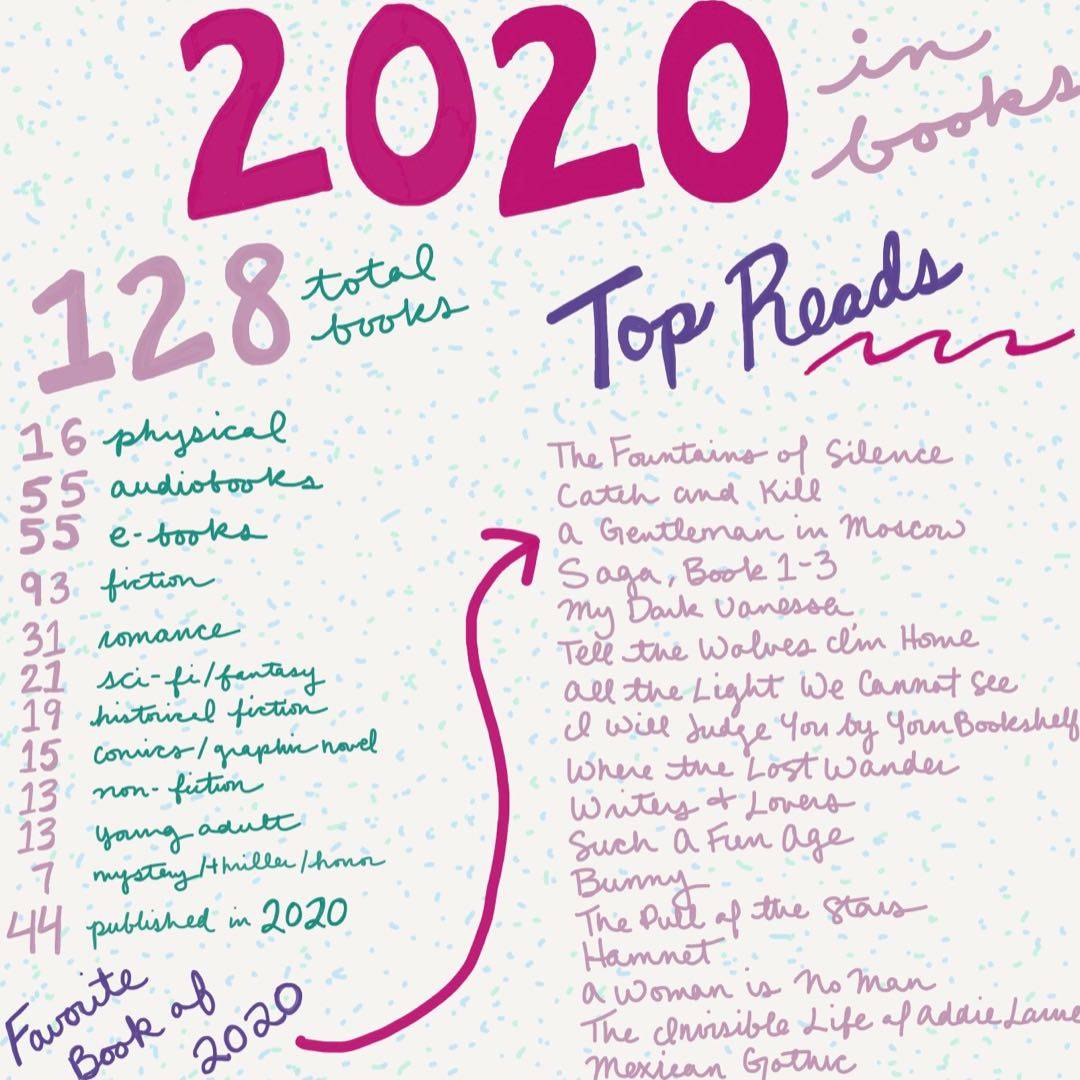 2020
in
books
128
total
books
16 physical
55 audiobooks
55 e-books
93 fiction
31 romance
21 sci-fi/fantasy
19 historical fiction
15 comics/graphic novel
13 non-fiction
13 young adult
7 mystery/thriller/horror
44 published in 2020
Favorite
Book of
2020
Top Reads
The Fountains of Silence
Catch and Kill
A Gentleman in Moscow
Saga, Book 1-3
My Dark Vanessa
Tell the Wolves I'm Home
All the Light We Cannot See
I Will Judge You by Your Bookshelf
Where the Lost Wander
Writers & Lovers
Such A Fun Age
Bunny
The Pull of the Stars
Hamnet
A Woman is No Man
The Invisible Life of Addie Larue
Mexican Gothic